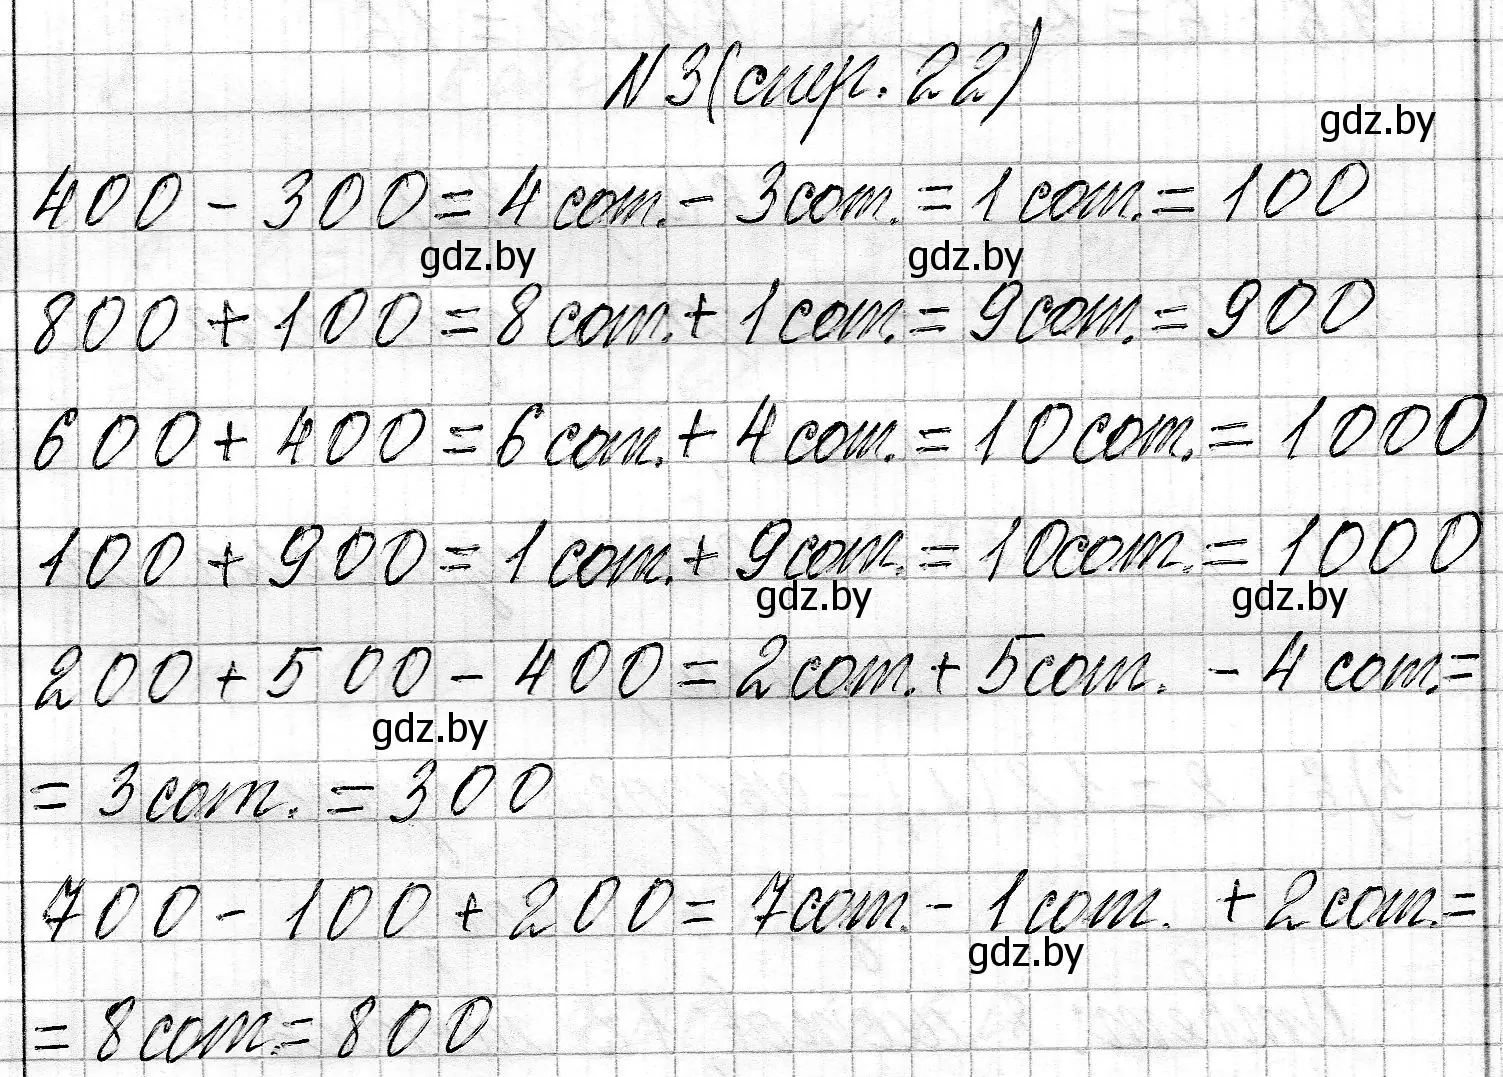 N 3 (стр. 22)
gdz.by
400 - 300 = 4 сот. - 3 сот. = 1 сот. = 100
gdz.by gdz.by
800 + 100 = 8 сот. + 1 сот. = 9 сот. = 900
600 + 400 = 6 сот. + 4 сот. = 10 сот. = 1000
100 + 900 = 1 сот. + 9 сот. = 10 сот. = 1000
gdz.by gdz.by
200 + 500 - 400 = 2 сот. + 5 сот. - 4 сот. =
gdz.by
= 3 сот. = 300
700 - 100 + 200 = 7 сот. - 1 сот. + 2 сот. =
gdz.by
= 8 сот. = 800